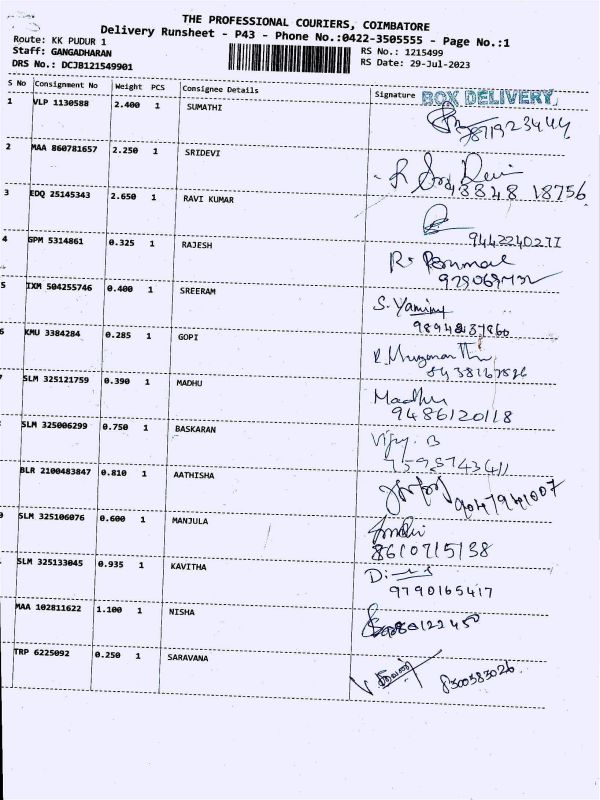 THE PROFESSIONAL COURIERS, COIMBATORE
Delivery Runsheet - P43 - Phone No.:0422-3505555 - Page No.:1
Route: KK PUDUR 1
RS No.: 1215499
Staff: GANGADHARAN
RS Date: 29-Jul-2023
DRS No.: DCJB121549901
S No Consignment No Weight PCS Consignee Details Signature BOX DELIVERY
1 VLP 1130588 2.400 1 SUMATHI
2 MAA 860781657 2.250 1 SRIDEVI R Sri Devi
18756
3 EDQ 25145343 2.650 1 RAVI KUMAR
9442240277
4 GPM 5314861 0.325 1 RAJESH
5 IXM 504255746 0.400 1 SREERAM S. Yamini
6 KMU 3384284 0.285 1 GOPI
SLM 325121759 0.390 1 MADHU Madhu
9486120118
SLM 325006299 0.750 1 BASKARAN Vijy. B
BLR 2100483847 0.810 1 AATHISHA
SLM 325106076 0.600 1 MANJULA
8610715138
SLM 325133045 0.935 1 KAVITHA
9790165417
MAA 102811622 1.100 1 NISHA
TRP 6225092 0.250 1 SARAVANA
8300583026